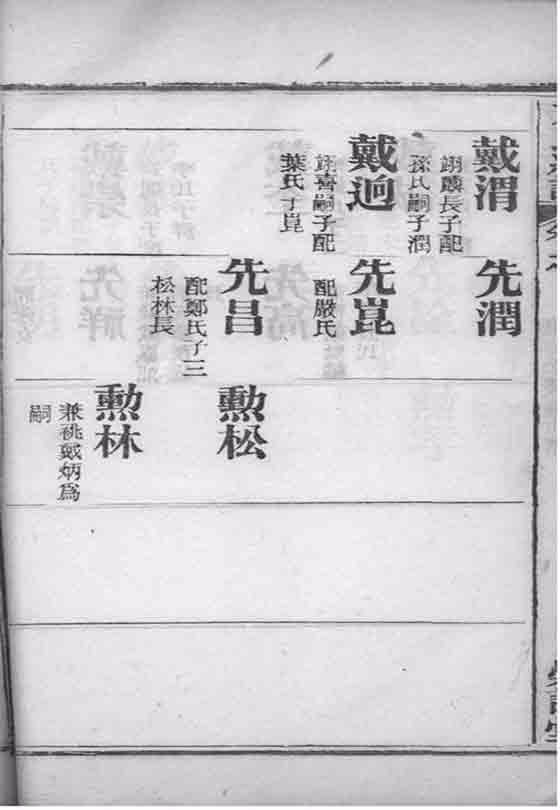 戴渭
翊麟長子配
孫氏嗣子潤
戴迴
翊喜嗣子配
葉氏子崑
先潤
先崑
配嚴氏
先昌
配鄭氏子三
松林長
勲松
勲林
兼祧戴炳爲
嗣